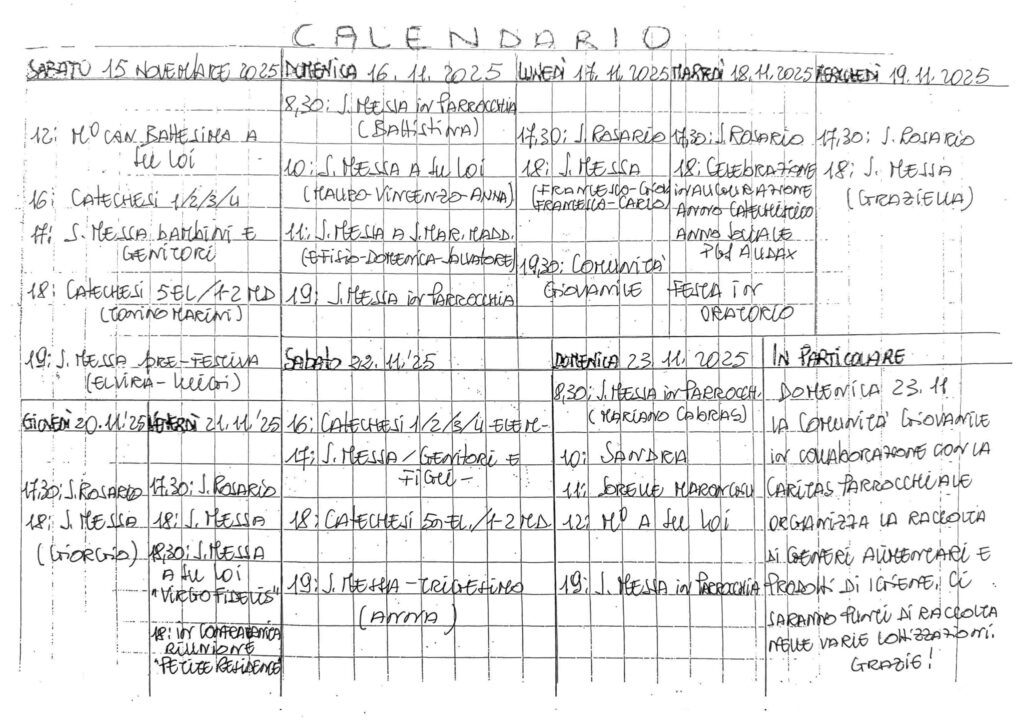 CALENDARIO
SABATO 15 NOVEMBRE 2025
12: M° CAN. BATTESIMA A
SU LOI
16: CATECHESI 1/2/3/4
17: S. MESSA BAMBINI E
GENITORI
18: CATECHESI 5EL/1-2 MD
(TONINO MARINI)
19: S. MESSA PRE-FESTIVA
(ELVIRA-LUIGI)
DOMENICA 16.11.2025
8,30: S. MESSA IN PARROCCHIA
(BATTISTINA)
10: S. MESSA A SU LOI
(MAURO-VINCENZO-ANNA)
11: S. MESSA A S. MAR. MADD.
(EFISIO-DOMENICA-SALVATORE)
19: S. MESSA IN PARROCCHIA
LUNEDÌ 17.11.2025
17,30: S. ROSARIO
18: S. MESSA
(FRANCESCO-GIOV
FRANCESCA-CARLO)
19,30: COMUNITA'
GIOVANILE
MARTEDÌ 18.11.2025
17,30: S. ROSARIO
18: CELEBRAZIONE
INAUGURAZIONE
ANNO CATECHISTICO
ANNO SOCIALE
PGS AUDAX
FESTA IN
ORATORIO
MERCOLEDÌ 19.11.2025
17,30: S. ROSARIO
18: S. MESSA
(GRAZIELLA)
GIOVEDÌ 20.11.'25
17,30: S. ROSARIO
18: S. MESSA
(GIORGIO)
VENERDÌ 21.11.'25
17,30: S. ROSARIO
18: S. MESSA
18,30: S. MESSA
A SU LOI
"VIRGO FIDELIS"
18: IN
RIUNIONE
"PETITE RESIDENCE
SABATO 22.11.'25
16: CATECHESI 1/2/3/4 ELEM-
17: S. MESSA/GENITORI E
FIGLI-
18: CATECHESI 5^EL./1-2 MD
19: S. MESSA-TRIGESIMO
(ANNA)
DOMENICA 23.11.2025
8,30: S. MESSA IN PARROCCH.
(MARIANO CABRAS)
10: SANDRA
11: SORELLE MARONGIU
12: M° A SU LOI
19: S. MESSA IN PARROCCHIA
IN PARTICOLARE
DOMENICA 23.11
LA COMUNITA' GIOVANILE
IN COLLABORAZIONE CON LA
CARITAS PARROCCHIALE
ORGANIZZA LA RACCOLTA
DI GENERI ALIMENTARI E
PRODOTTI DI IGIENE. CI
SARANNO PUNTI DI RACCOLTA
NELLE VARIE LOTTIZZAZIONI.
GRAZIE!